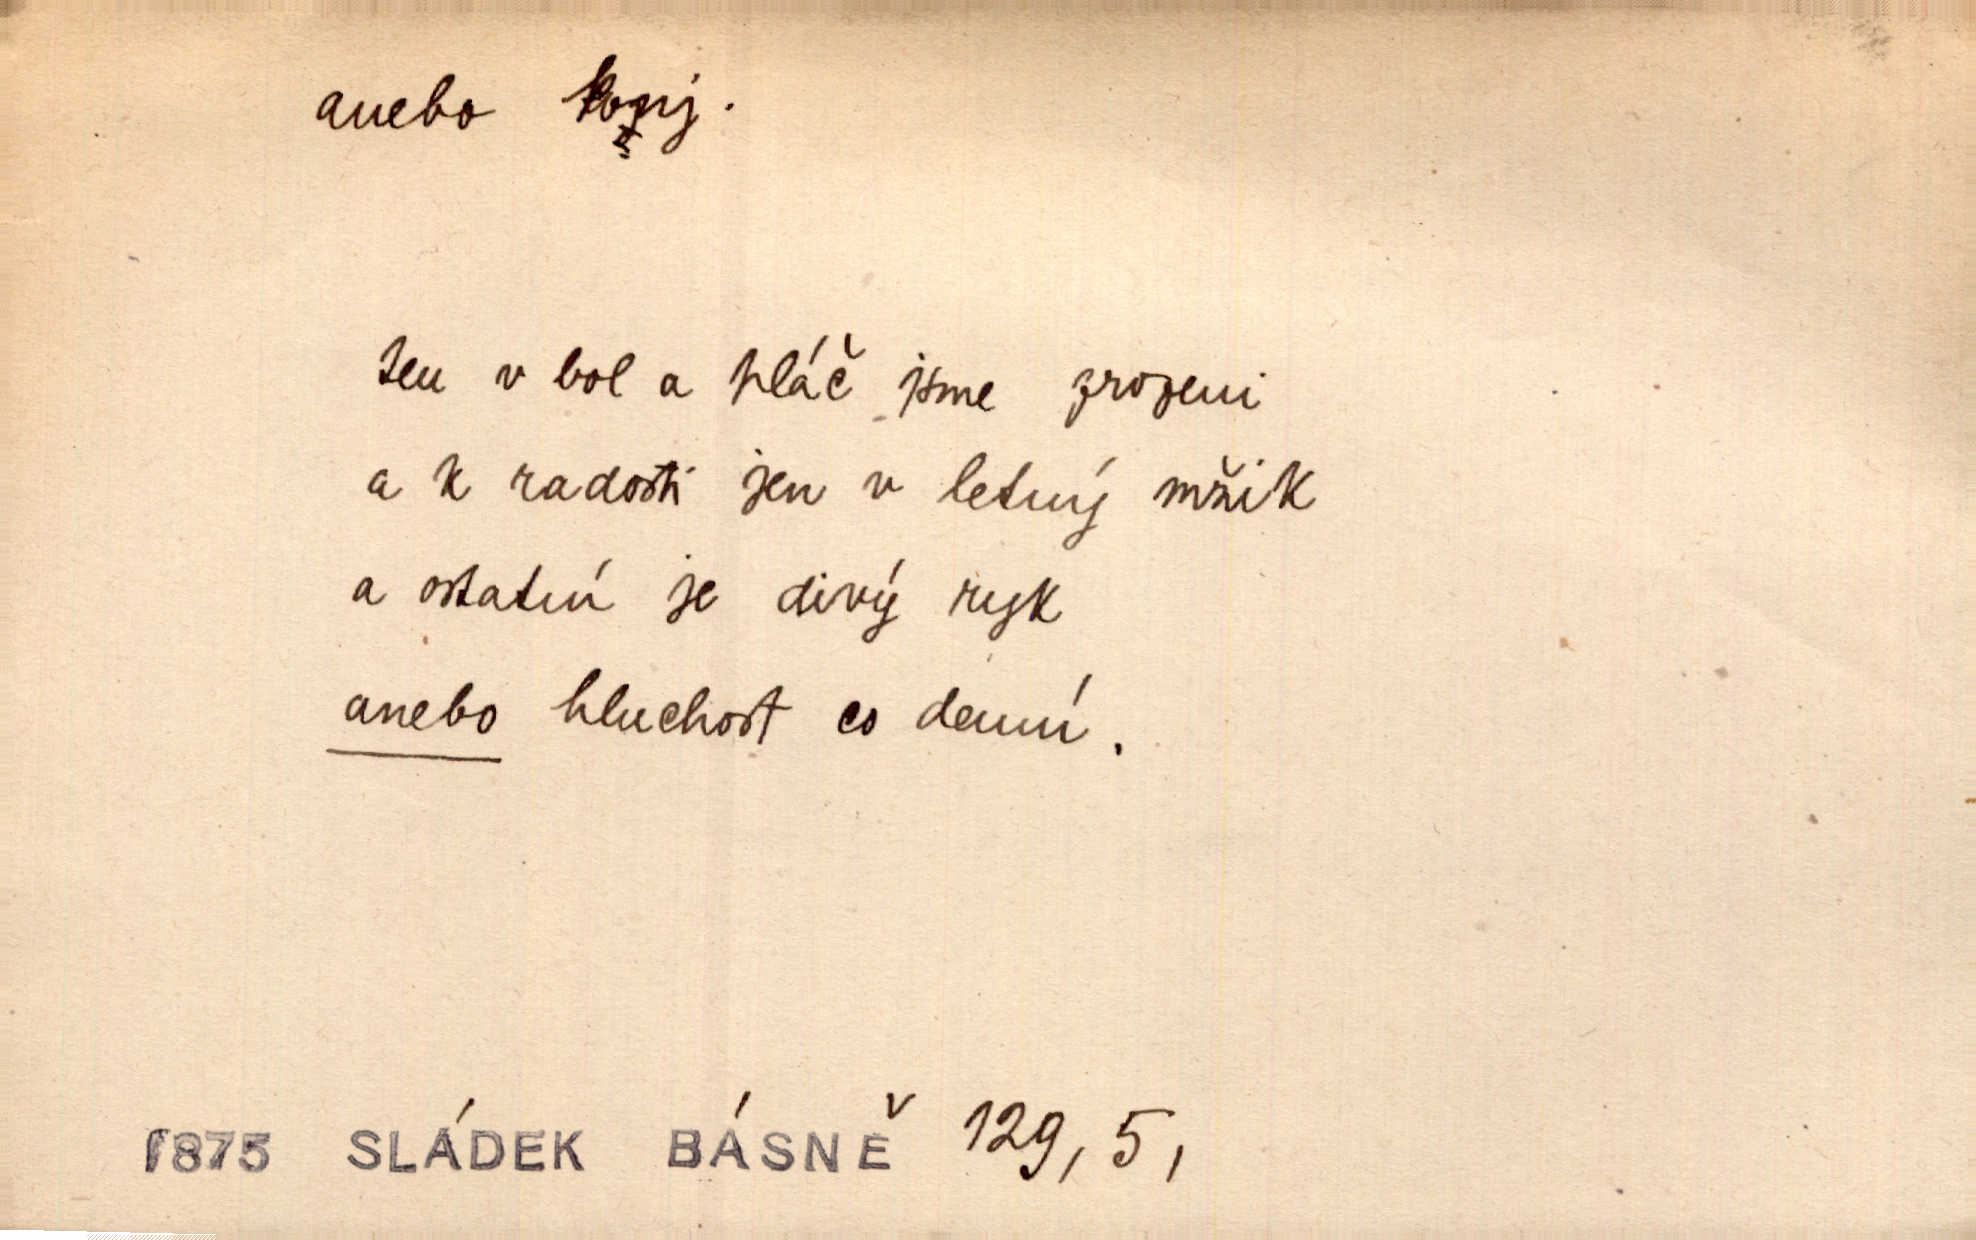 anebo konj.
ten v bol a pláč jsme zrozeni
a k radosti jen v letný mžik
a ostatní je divý ryk
anebo hluchost co denní.
1875 SLÁDEK BÁSNĚ 129, 5,